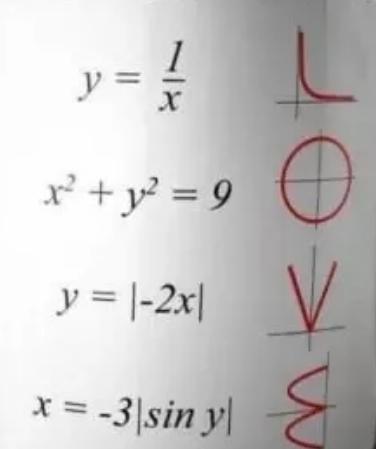 y = 1/x
x² + y² = 9
y = |-2x|
x = -3|sin y|